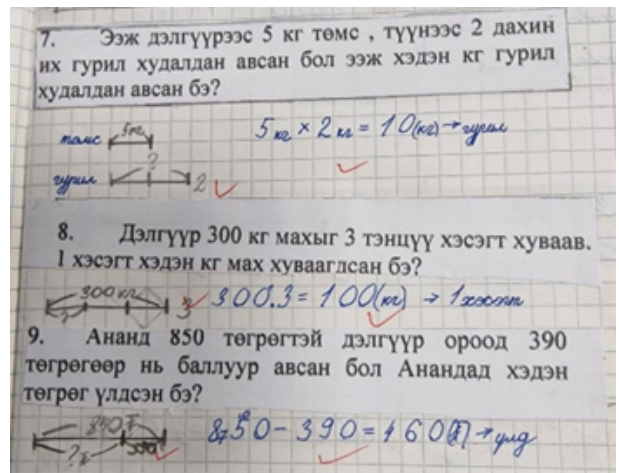 7. Ээж дэлгүүрээс 5 кг төмс , түүнээс 2 дахин
их гурил худалдан авсан бол ээж хэдэн кг гурил
худалдан авсан бэ?
төмс 5кг 5 кг × 2 кг = 10(кг) → гурил
?
гурил 2
8. Дэлгүүр 300 кг махыг 3 тэнцүү хэсэгт хуваав.
1 хэсэгт хэдэн кг мах хуваагдсан бэ?
300 кг 3 300:3 = 100(кг) → 1 хэсэгт
?
9. Ананд 850 төгрөгтэй дэлгүүр ороод 390
төгрөгөөр нь баллуур авсан бол Анандад хэдэн
төгрөг үлдсэн бэ?
850 - 390 = 460(₮) → үлд
?₮ 390